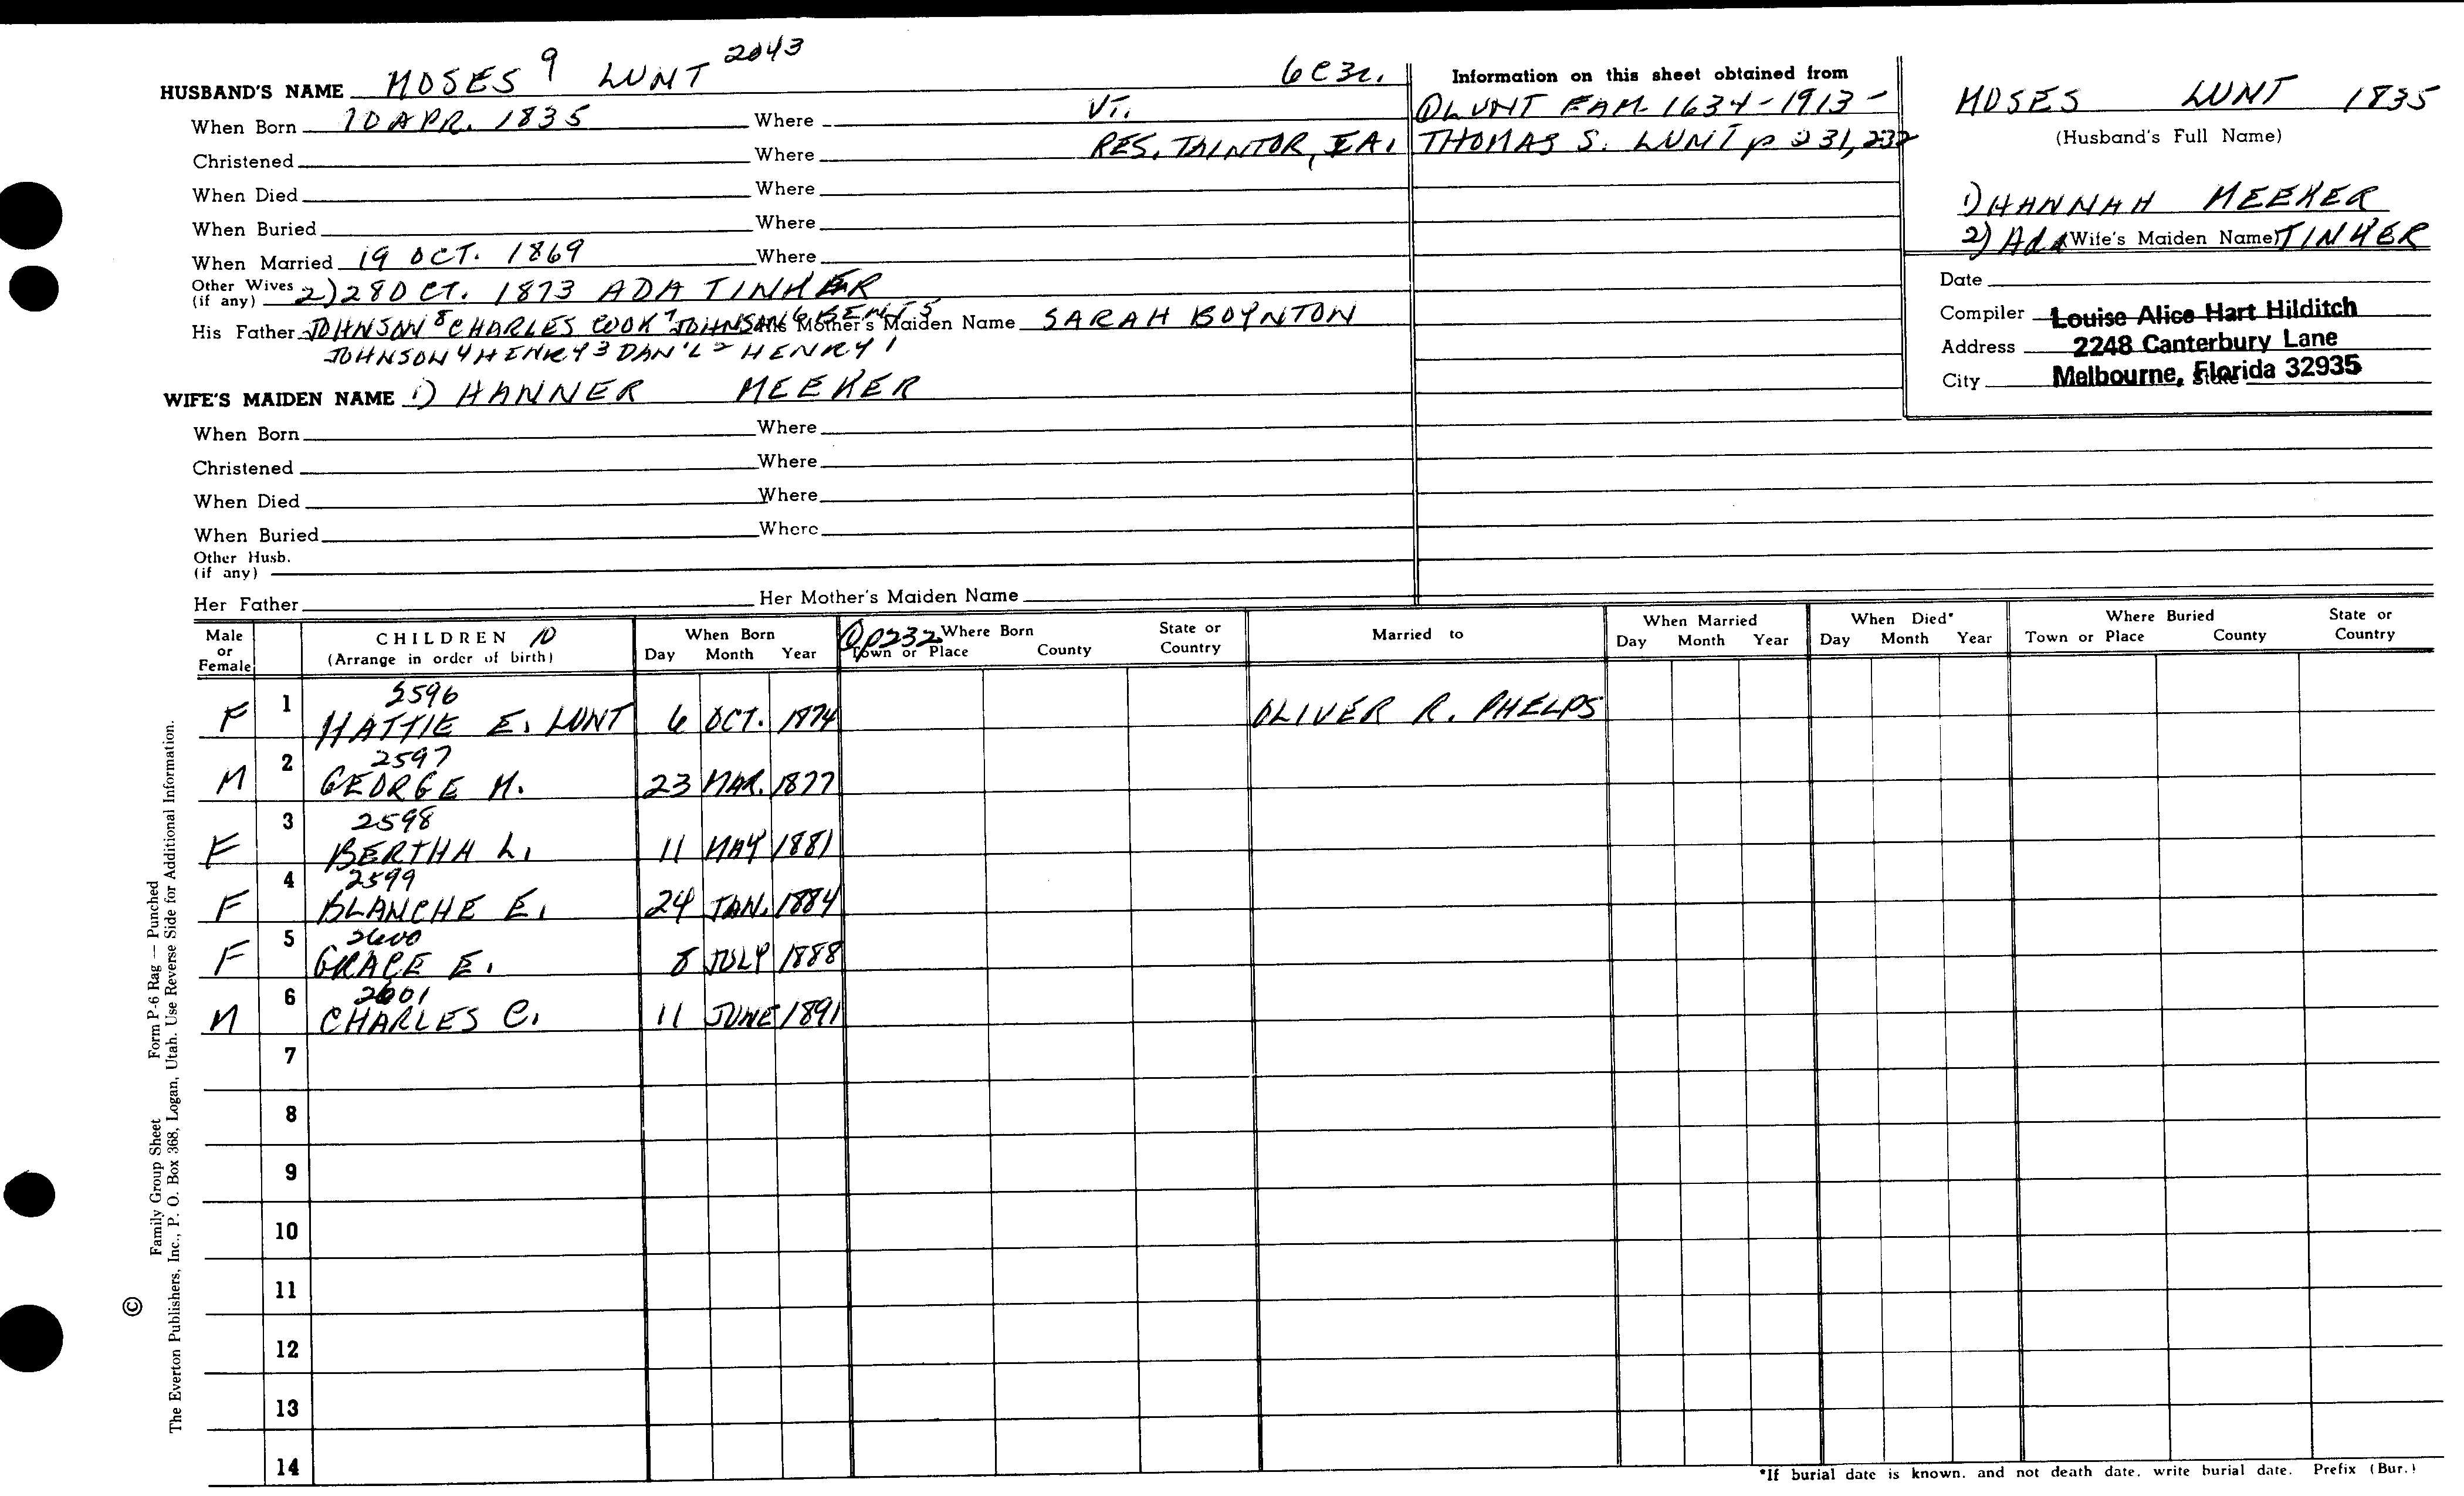 HUSBAND'S NAME MOSES 9 LUNT 2043 6C3r.
When Born 10 APR. 1835 Where VT.
Christened Where RES. TAINTOR, IA.
When Died Where
When Buried Where
When Married 19 OCT. 1869 Where
Other Wives (if any) 2) 28 OCT. 1873 ADA TINKER
His Father JOHNSON 8 CHARLES COOK 7 JOHNSON 6 BENJ 5 His Mother's Maiden Name SARAH BOYNTON
JOHNSON 4 HENRY 3 DAN'L 2 HENRY 1
WIFE'S MAIDEN NAME 1) HANNER MEEKER
When Born Where
Christened Where
When Died Where
When Buried Where
Other Husb.
(if any)
Her Father Her Mother's Maiden Name
Information on this sheet obtained from
① LUNT FAM. 1634-1913-
THOMAS S. LUNT p 231, 232
MOSES LUNT 1835
(Husband's Full Name)
1) HANNAH MEEKER
2) ADA Wife's Maiden Name TINKER
Date
Compiler Louise Alice Hart Hilditch
Address 2248 Canterbury Lane
City Melbourne, Florida 32935 State
Male or Female CHILDREN 10 (Arrange in order of birth) When Born Day Month Year ① p232 Where Born Town or Place County State or Country Married to When Married Day Month Year When Died* Day Month Year Where Buried Town or Place County State or Country
2596
F 1 HATTIE E. LUNT 6 OCT. 1874 OLIVER R. PHELPS
2597
M 2 GEORGE M. 23 MAR. 1877
2598
F 3 BERTHA L. 11 MAY 1881
2599
F 4 BLANCHE E. 24 JAN. 1884
2600
F 5 GRACE E. 8 JULY 1888
2601
M 6 CHARLES C. 11 JUNE 1891
7
8
9
10
11
12
13
14
*If burial date is known, and not death date, write burial date. Prefix (Bur.)
© Family Group Sheet Form P-6 Rag — Punched
The Everton Publishers, Inc., P. O. Box 368, Logan, Utah. Use Reverse Side for Additional Information.